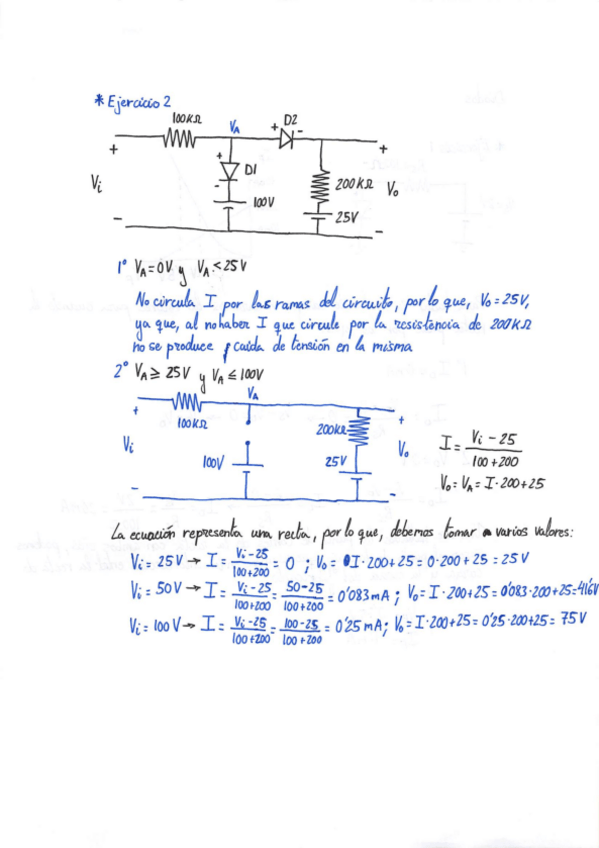 * Ejercicio 2
100KΩ
VA
+ D2 -
+ +
+ D1
Vi
-
200KΩ Vo
100V
25V
- -
1° VA = 0V y VA < 25V
No circula I por las ramas del circuito, por lo que, Vo = 25V,
ya que, al no haber I que circule por la resistencia de 200KΩ
no se produce caída de tensión en la misma
2° VA ≥ 25V y VA ≤ 100V
VA
+ +
100KΩ
200KΩ
Vi
Vo
100V
25V
- -
I = Vi - 25 / 100 + 200
Vo = VA = I · 200 + 25
La ecuación representa una recta, por lo que, debemos tomar varios valores:
Vi = 25V → I = Vi - 25 / 100 + 200 = 0 ; Vo = I · 200 + 25 = 0 · 200 + 25 = 25V
Vi = 50V → I = Vi - 25 / 100 + 200 = 50 - 25 / 100 + 200 = 0'083 mA ; Vo = I · 200 + 25 = 0'083 · 200 + 25 = 41'6V
Vi = 100V → I = Vi - 25 / 100 + 200 = 100 - 25 / 100 + 200 = 0'25 mA ; Vo = I · 200 + 25 = 0'25 · 200 + 25 = 75V